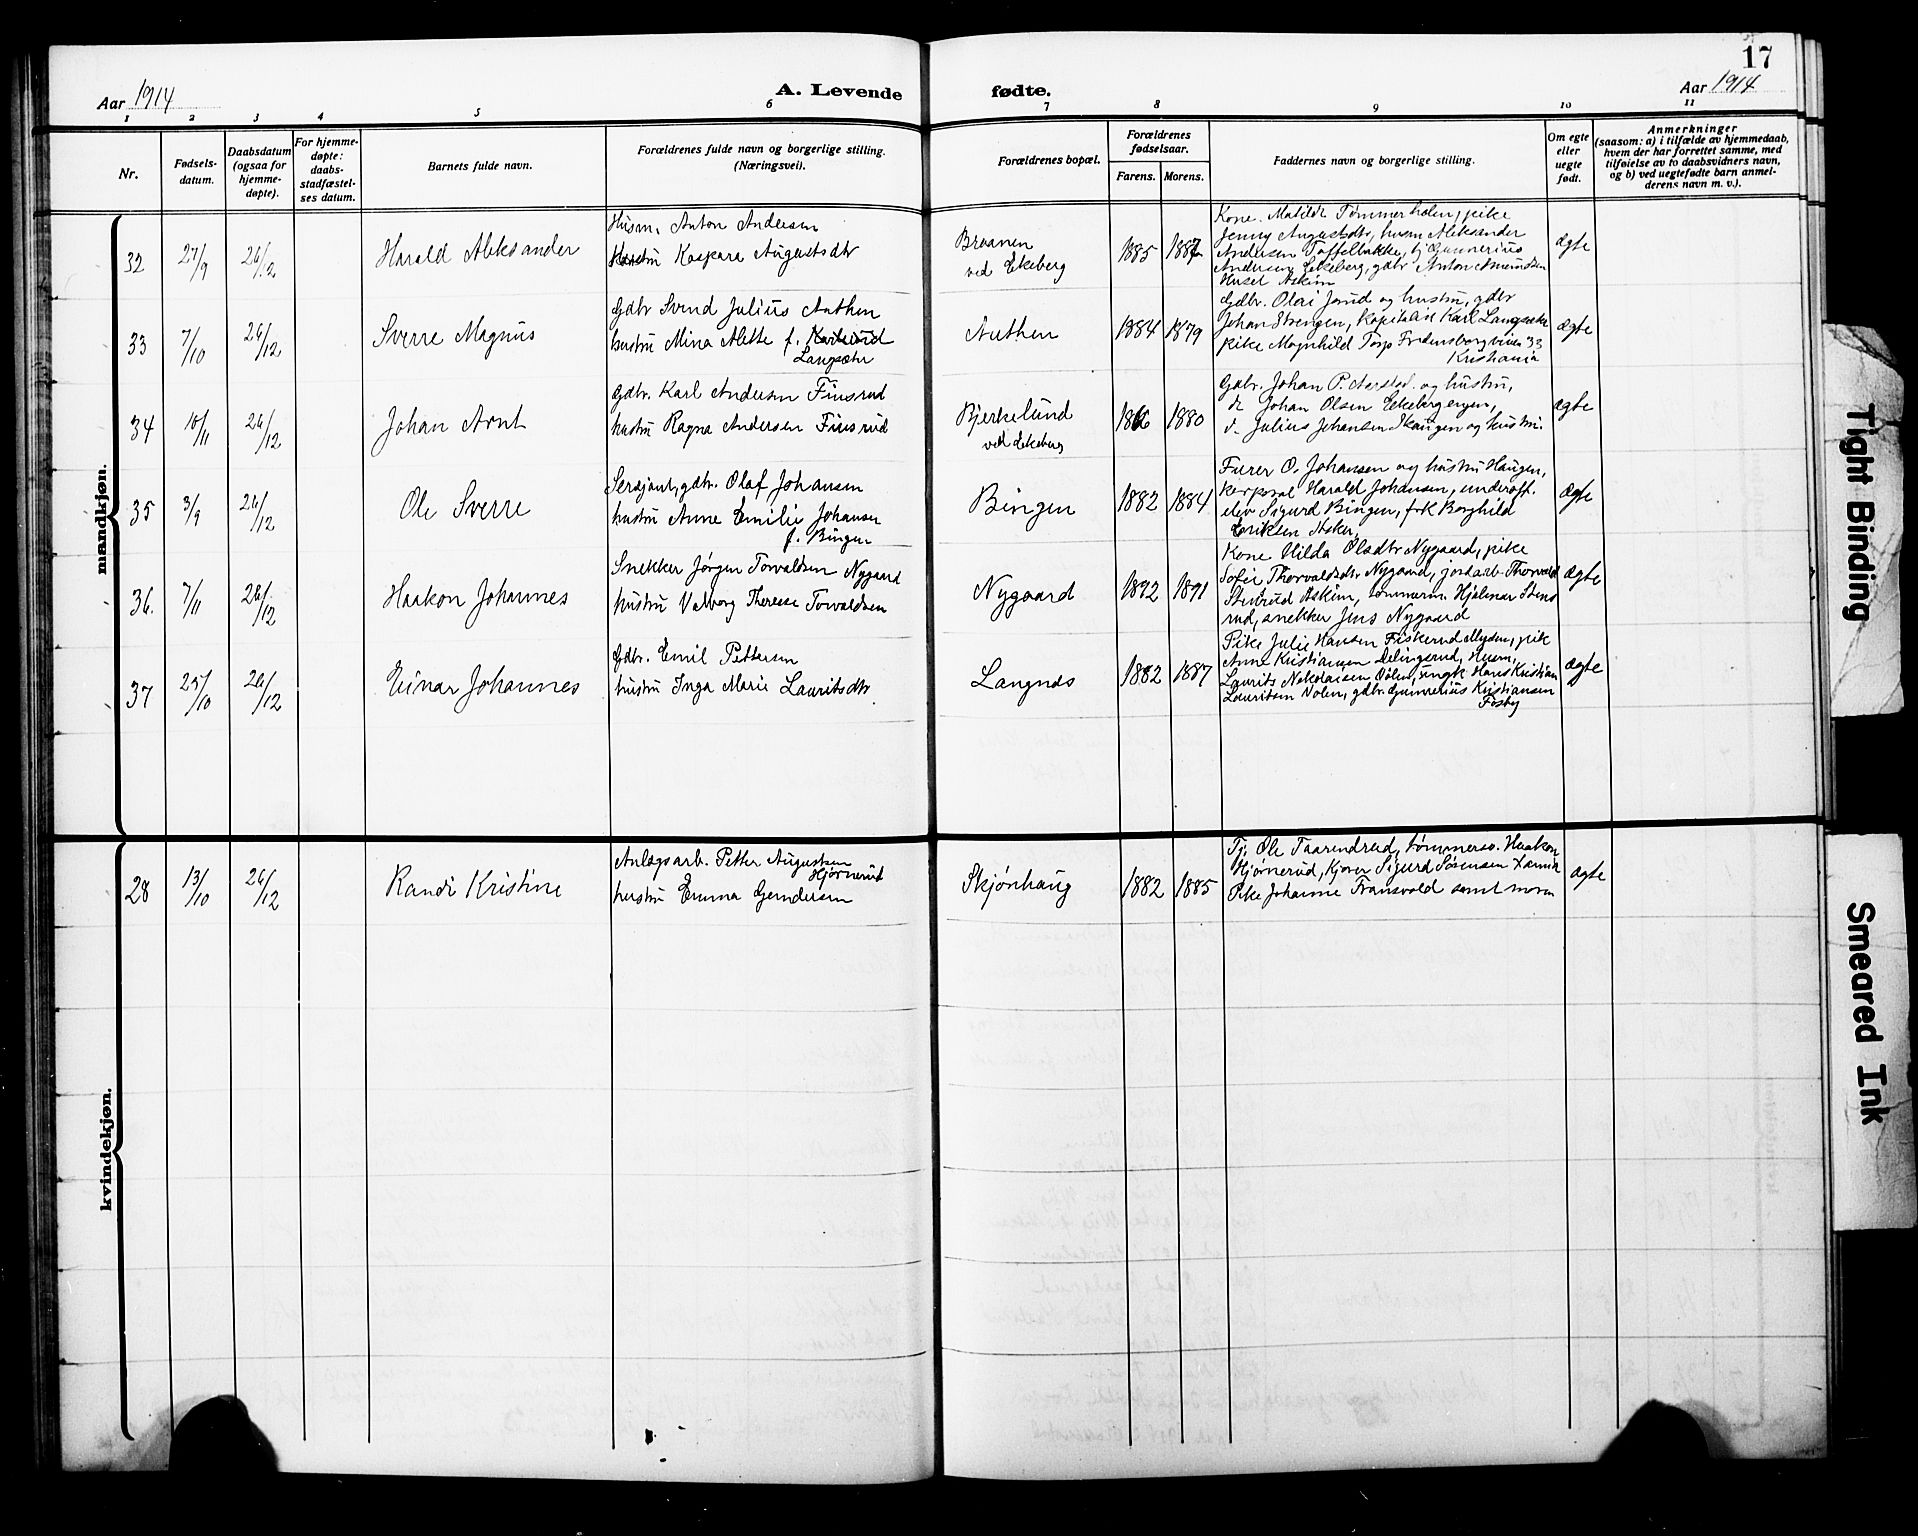 17
Aar 1914
A. Levende fødte.
Aar 1914
1 2 3 4 5 6 7 8 9 10 11
Nr.
Fødsels-
datum.
Daabsdatum
(ogsaa for
hjemme-
døpte).
For hjemme-
døpte:
daabs-
stadfæstel-
ses datum.
Barnets fulde navn.
Forældrenes fulde navn og borgerlige stilling.
(Næringsvei).
Forældrenes bopæl.
Forældrenes
fødselsaar.
Farens. Morens.
Faddernes navn og borgerlige stilling.
Om egte
eller
uegte
født.
Anmerkninger
(saasom: a) i tilfælde av hjemmedaab,
hvem der har forrettet samme, med
tilføielse av to daabsvidners navn,
og b) ved uegtefødte barn anmel-
derens navn m. v.).
mandkjøn.
32 27/9 26/12 Harald Aleksander
Husm. Anton Andersen
hustru Kaspara Augustsdtr
Braanen
ved Ekeberg
1885 1887
Kone Matilde Tømmerholen, pike
Jenny Augustsdtr, husm Aleksander
Andersen Toffelbakke, tj Gunnerius
Andersen Eekeberg, gdbr Anton Amundsen
Huset Askim
Ægte
33 7/10 26/12 Sverre Magnus
Gdbr Svend Julius Authen
hustru Mina Alette f.
Langsæter
Authen
1884 1879
Gdbr. Olai Jorud og hustru, gdbr
Johan Strengen, Kaptein Karl Langsæter
pike Magnhild Torp Fredensborgveien 33
Kristiania
Ægte
34 10/11 26/12 Johan Arnt
Gdbr. Karl Andersen Finsrud
hustru Ragna Andersen Finsrud
Bjerkelund
ved Ekeberg
1880
Gdbr. Johan P. og hustru,
d. Johan Olsen Eekebergengen,
d. Julius Johansen Skaugen og hustru.
Ægte
35 3/9 26/12 Ole Sverre
Sersjant, gdbr. Olaf Johansen
hustru Anne Emilie Johansen
f. Bingen
Bingen
1882 1884
Furer O. Johansen og hustru Haugen,
korporal Harald Johansen, underoff.
elev Sigurd Bingen, frk Borghild
Eriksen Asker,
Ægte
36. 7/11 26/12 Haakon Johannes
Snekker Jørgen Torvaldsen Nygaard
hustru Valborg Therese Torvaldsen
Nygaard
1892 1891
Kone Hilda Olsdtr Nygaard, pike
Sofie Thorvaldsdtr. Nygaard, jordarb. Thorvald
Stenrud Askim, tømmerm. Hjelmar Stens
rud, snekker Jens Nygaard
Ægte
37 25/10 26/12 Einar Johannes
Gdbr. Emil Pettersen
hustru Inga Marie Lauritsdtr
Langnes
1882 1887
Pike Julie Hansen Fiskerud Mysen, pike
Anne Kristiansen Delingsrud, Husm,
Laurits Nikolaisen Dølen, ungk Hans Kristian
Lauritsen Dølen, gdbr. Gunnerius Kristiansen
Fosby
Ægte
kvindekjøn.
28 13/10 26/12 Randi Kristine
Anlægsarb. Petter Augustsen
Hjørnerud
hustru Emma Gundersen
Skjønhaug
1882 1885
Tj. Ole Taarendrud, tømmersv. Haakon
Hjørnerud, Kjører Sigurd Sørensen
Pike Johanne Transvold samt moren
Ægte
Tight Binding
Smeared Ink